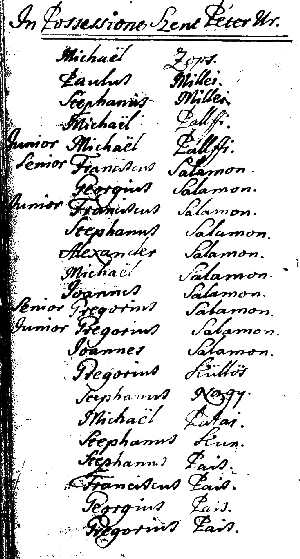 In Possessione Szent Péter Ur.
Michaël Zsos.
Paulus Millei.
Stephanus Millei.
Michaël Pallfi.
Junior Michaël Pallffi.
Senior Franciscus Salamon.
Georgius Salamon.
Junior Franciscus Salamon.
Stephanus Salamon.
Alexander Salamon.
Michaël Salamon.
Joannes Salamon.
Senior Gregorius Salamon.
Junior Gregorius Salamon.
Joannes Salamon.
Gregorius Küllös
Stephanus Nagy.
Michaël Patai.
Stephanus Kun.
Stephanus Pais.
Franciscus Pais.
Georgius Pais.
Gregorius Pais.